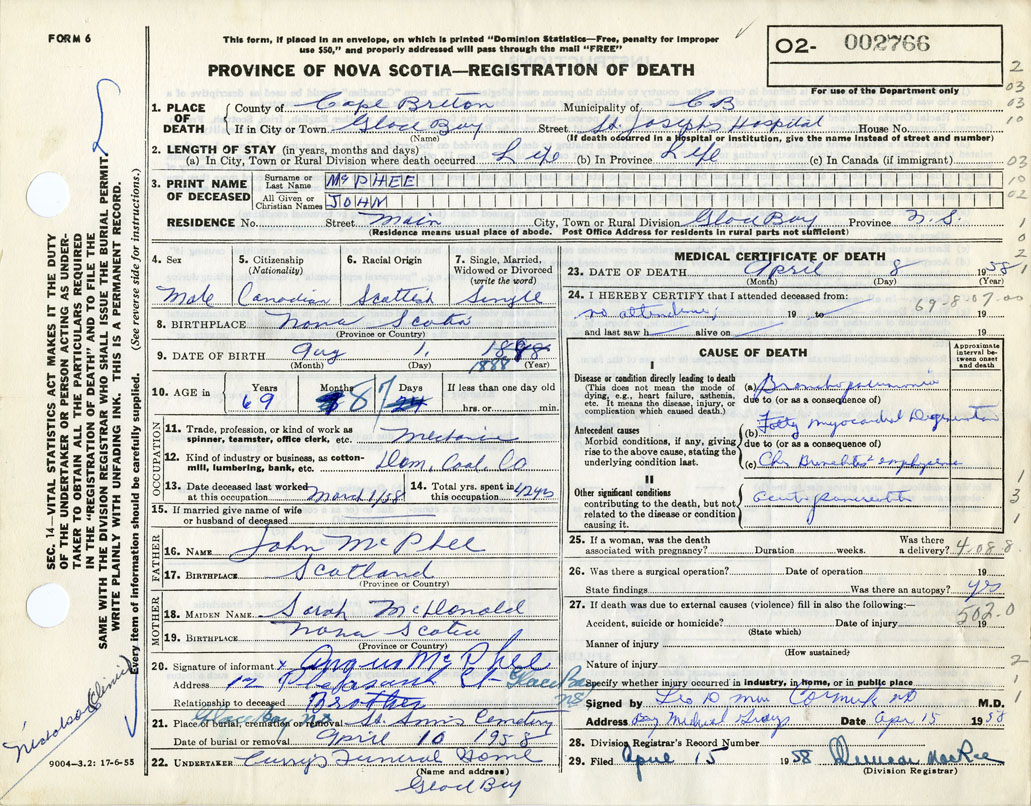 FORM 6
This form, if placed in an envelope, on which is printed "Dominion Statistics—Free, penalty for improper
use $50," and properly addressed will pass through the mail "FREE"
O2- 002766
For use of the Department only
PROVINCE OF NOVA SCOTIA—REGISTRATION OF DEATH
1. PLACE OF DEATH
County of Cape Breton Municipality of CB
If in City or Town Glace Bay Street St. Josephs Hospital House No.
(Name) (If death occurred in a hospital or institution, give the name instead of street and number)
2. LENGTH OF STAY (in years, months and days)
(a) In City, Town or Rural Division where death occurred Life (b) In Province Life (c) In Canada (if immigrant)
3. PRINT NAME OF DECEASED
Surname or Last Name McPHEE
All Given or Christian Names JOHN
RESIDENCE No. Street Main City, Town or Rural Division Glace Bay Province N.S.
(Residence means usual place of abode. Post Office Address for residents in rural parts not sufficient)
4. Sex
Male
5. Citizenship (Nationality)
Canadian
6. Racial Origin
Scottish
7. Single, Married, Widowed or Divorced (write the word)
Single
8. BIRTHPLACE Nova Scotia
(Province or Country)
9. DATE OF BIRTH Aug 1, 1888
(Month) (Day) (Year)
10. AGE in Years Months Days If less than one day old
69 8 7 hrs. or min.
OCCUPATION
11. Trade, profession, or kind of work as spinner, teamster, office clerk, etc. Mechanic
12. Kind of industry or business, as cotton-mill, lumbering, bank, etc. Dom. Coal. Co
13. Date deceased last worked at this occupation March 1/58 14. Total yrs. spent in this occupation 42 yrs
15. If married give name of wife or husband of deceased
FATHER
16. NAME John McPhee
17. BIRTHPLACE Scotland
(Province or Country)
MOTHER
18. MAIDEN NAME Sarah McDonald
19. BIRTHPLACE Nova Scotia
(Province or Country)
20. Signature of informant x Angus McPhee
Address 12 Pleasant St Glace Bay NS
Relationship to deceased Brother
21. Place of burial, cremation or removal Glace Bay NS St. Anns Cemetery
Date of burial or removal April 10 1958
22. UNDERTAKER Curry's Funeral Home
(Name and address)
Glace Bay
MEDICAL CERTIFICATE OF DEATH
23. DATE OF DEATH April 8 1958
(Month) (Day)
24. I HEREBY CERTIFY that I attended deceased from:
no attendance, 19 to 19
and last saw h alive on 19
69-8-07.00
CAUSE OF DEATH
Approximate interval between onset and death
I
Disease or condition directly leading to death
(This does not mean the mode of dying, e.g., heart failure, asthenia, etc. It means the disease, injury, or complication which caused death.)
(a) Bronchopneumonia
due to (or as a consequence of)
Antecedent causes
Morbid conditions, if any, giving rise to the above cause, stating the underlying condition last.
(b) Fatty myocardial Degeneration
due to (or as a consequence of)
(c) Chr Bronchitis emphysema
II
Other significant conditions contributing to the death, but not related to the disease or condition causing it.
25. If a woman, was the death associated with pregnancy? Duration weeks. Was there a delivery?
4-08.8
26. Was there a surgical operation? Date of operation 19
State findings Was there an autopsy? yes
27. If death was due to external causes (violence) fill in also the following:—
502.0
Accident, suicide or homicide? Date of injury 19
(State which)
Manner of injury
(How sustained)
Nature of injury
Specify whether injury occurred in industry, in home, or in public place
Signed by M.D.
Address Date Apr 15 1958
28. Division Registrar's Record Number
29. Filed April 15 1958 Duncan MacRae
(Division Registrar)
SEC. 14—VITAL STATISTICS ACT MAKES IT THE DUTY
OF THE UNDERTAKER OR PERSON ACTING AS UNDER-
TAKER TO OBTAIN ALL THE PARTICULARS REQUIRED
IN THE "REGISTRATION OF DEATH" AND TO FILE THE
SAME WITH THE DIVISION REGISTRAR WHO SHALL ISSUE THE BURIAL PERMIT.
WRITE PLAINLY WITH UNFADING INK. THIS IS A PERMANENT RECORD.
Every item of information should be carefully supplied. (See reverse side for instructions.)
9004—3.2: 17-6-55
2
03
03
10
03
10
02
1
0
2
1
1
3
1
2
1
1